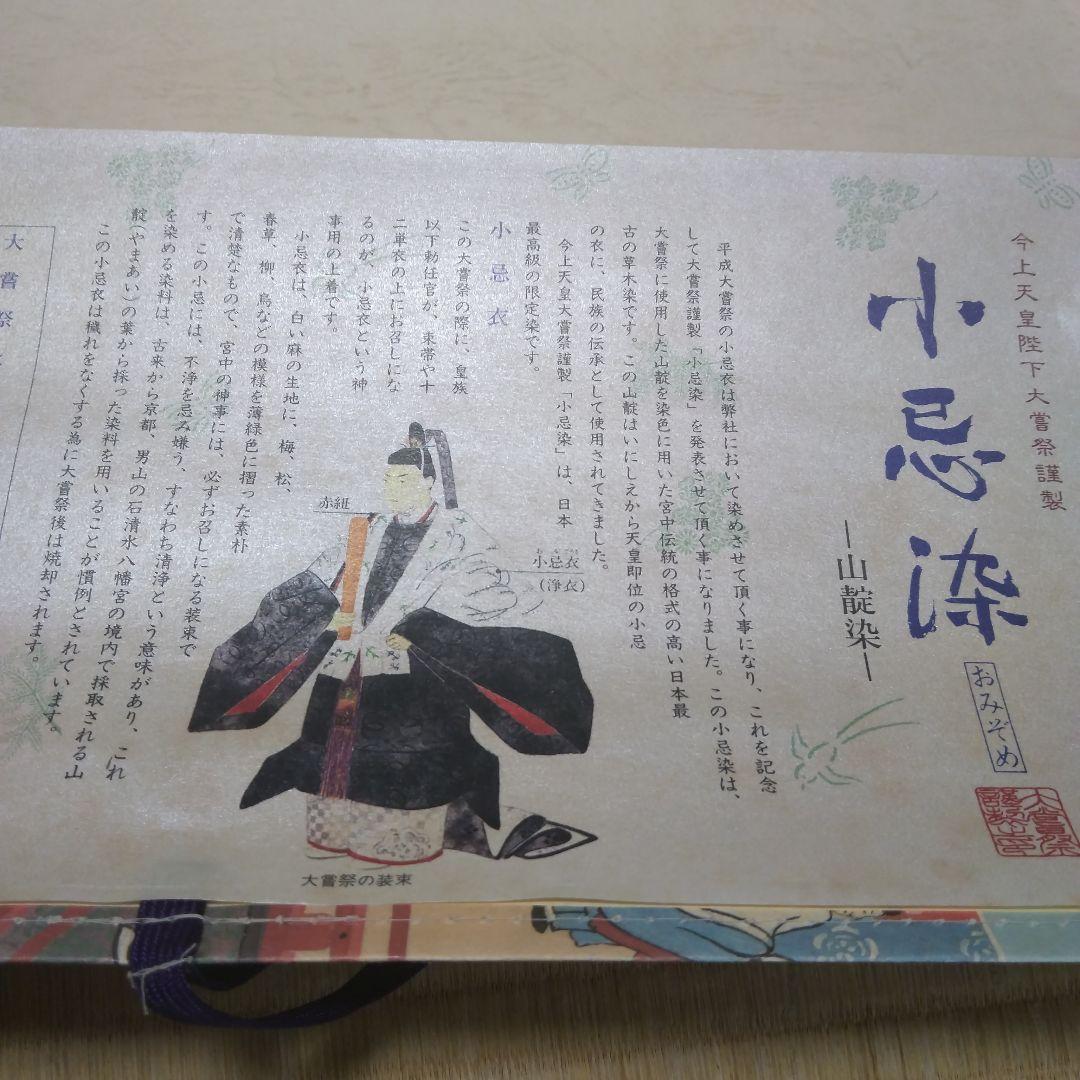 今上天皇陛下大嘗祭謹製
小忌染
おみぞめ
―山靛染―
大嘗祭
謹製之印
平成大嘗祭の小忌衣は弊社において染めさせて頂く事になり、これを記念
して大嘗祭謹製「小忌染」を発表させて頂く事になりました。この小忌染は、
大嘗祭に使用した山靛を染色に用いた宮中伝統の格式の高い日本最
古の草木染です。この山靛はいにしえから天皇即位の小忌
の衣に、民族の伝承として使用されてきました。
今上天皇大嘗祭謹製「小忌染」は、日本
最高級の限定染です。
小忌衣
この大嘗祭の際に、皇族
以下勅任官が、束帯や十
二単衣の上にお召しにな
るのが、小忌衣という神
事用の上着です。
小忌衣は、白い麻の生地に、梅、松、
春草、柳、鳥などの模様を薄緑色に摺った素朴
で清楚なもので、宮中の神事には、必ずお召しになる装束で
す。この小忌には、不浄を忌み嫌う、すなわち清浄という意味があり、これ
を染める染料は、古来から京都、男山の石清水八幡宮の境内で採取される山
靛(やまあい)の葉から採った染料を用いることが慣例とされています。
この小忌衣は穢れをなくする為に大嘗祭後は焼却されます。
赤紐
小忌衣
(浄衣)
大嘗祭の装束
大嘗祭